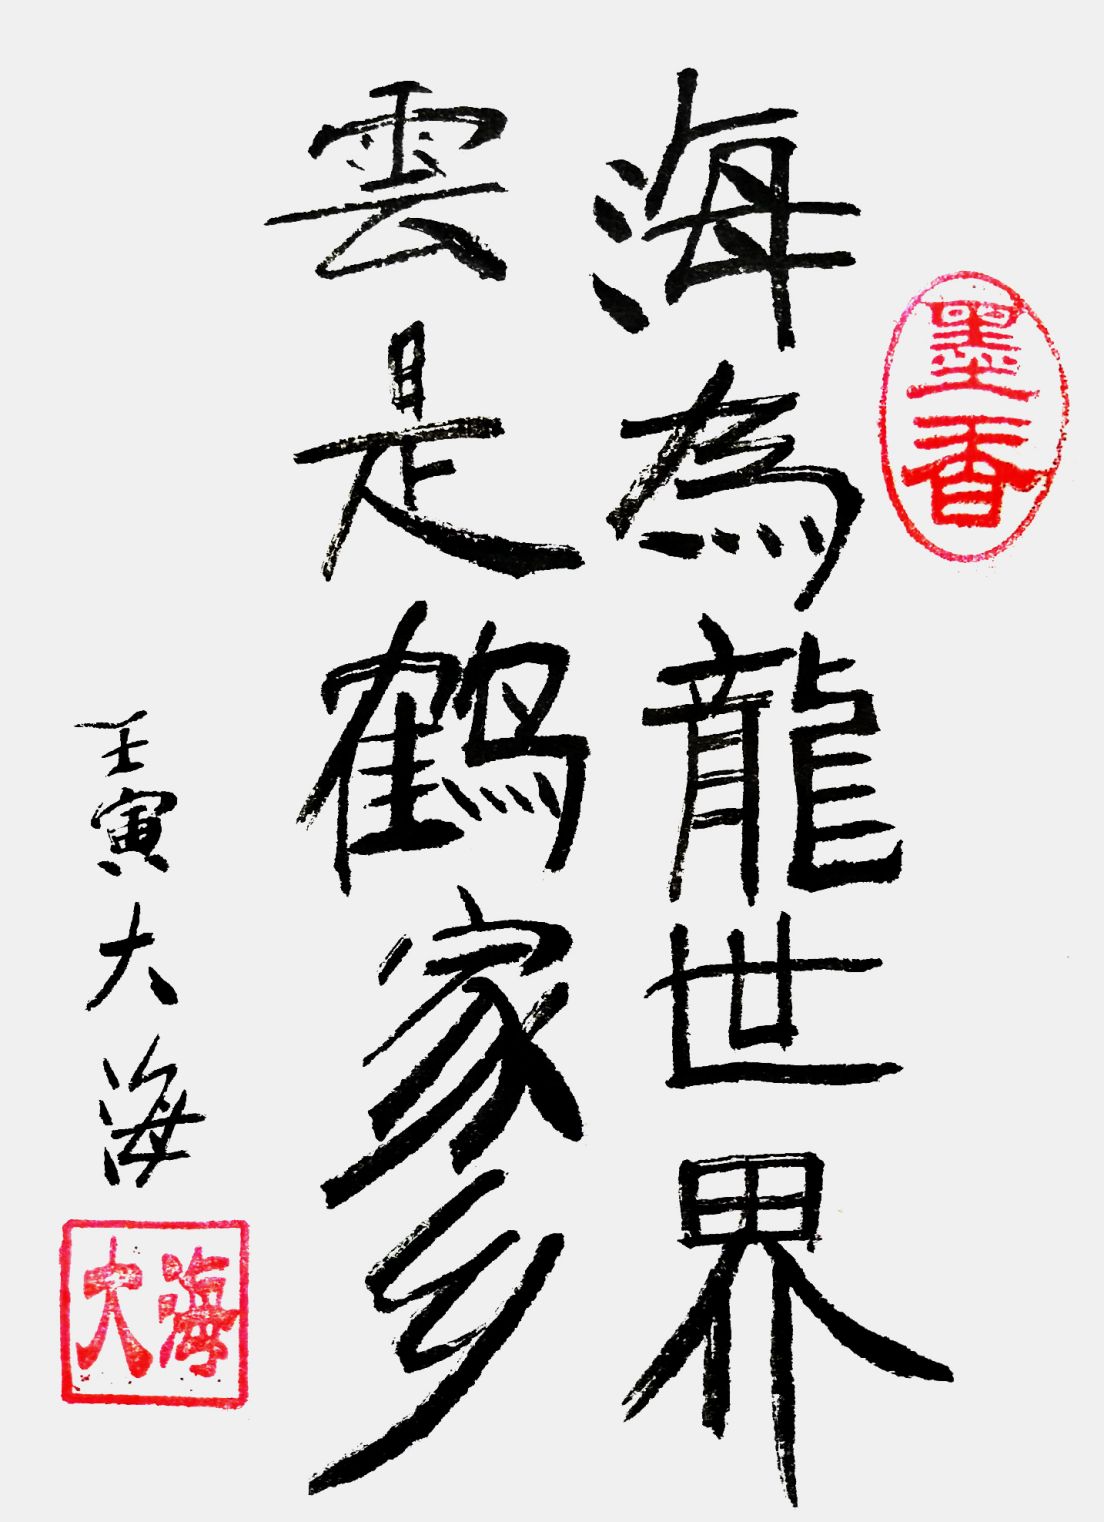 墨香
海為龍世界
雲是鶴家乡
壬寅大海
大海